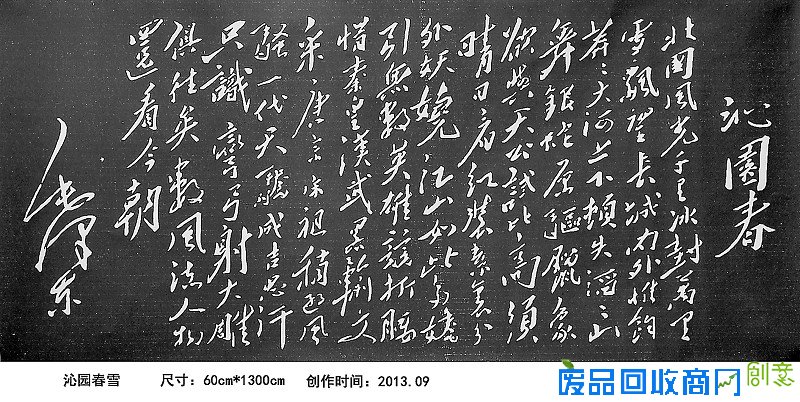 沁園春
北國風光千里冰封萬里
雪飄望長城内外惟餘
莽々大河上下頓失滔々山
舞銀蛇原驅臘象
欲與天公試比高須
晴日看紅裝素裹分
外妖嬈江山如此多嬌
引無數英雄競折腰
惜秦皇漢武略輸文
采唐宗宋祖稍遜風
騷一代天驕成吉思汗
只識彎弓射大雕
俱往矣數風流人物
還看今朝
毛澤东
沁园春雪 尺寸：60cm*1300cm 创作时间：2013.09
废品回收商网
创意